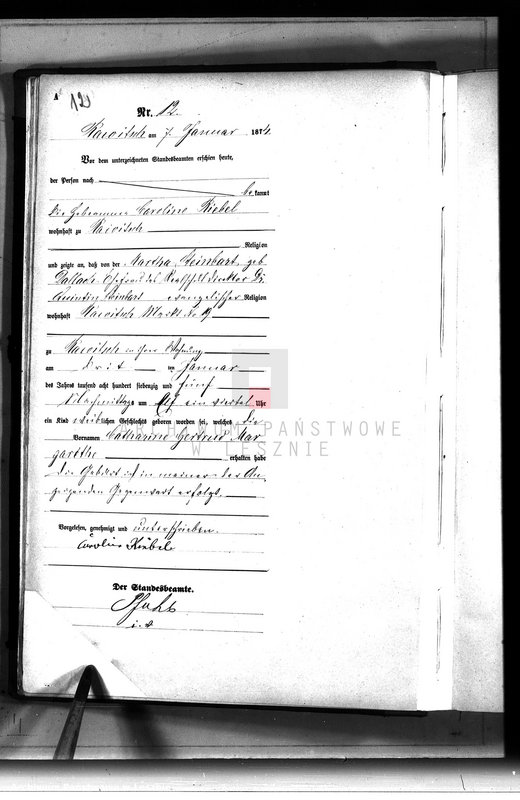 A 12
Nr. 12.
Rawitsch am 7. Januar 187
Vor dem unterzeichneten Standesbeamten erschien heute,
der Person nach
be kannt
die Hebamme Caroline
wohnhaft zu Rawitsch
Religion
und zeigte an, daß von der Martha Steinbart, geb.
Ehefrau des Realschuldirektor Dr.
Quintin Steinbart evangelischer Religion
wohnhaft Rawitsch Markt No 19
zu Rawitsch in ihrer Wohnung
am drit ten Januar
des Jahres tausend acht hundert siebenzig und fünf
Nachmittags um ein viertel Uhr
ein Kind weiblichen Geschlechts geboren worden sei, welches die
Vornamen Catharine Gertrud Mar
garethe
erhalten habe
Die Geburt ist in meiner der An
zeigenden Gegenwart erfolgt.
Vorgelesen, genehmigt und unterschrieben.
Caroline
Der Standesbeamte.
i. V.
ARCHIWUM PAŃSTWOWE
W LESZNIE